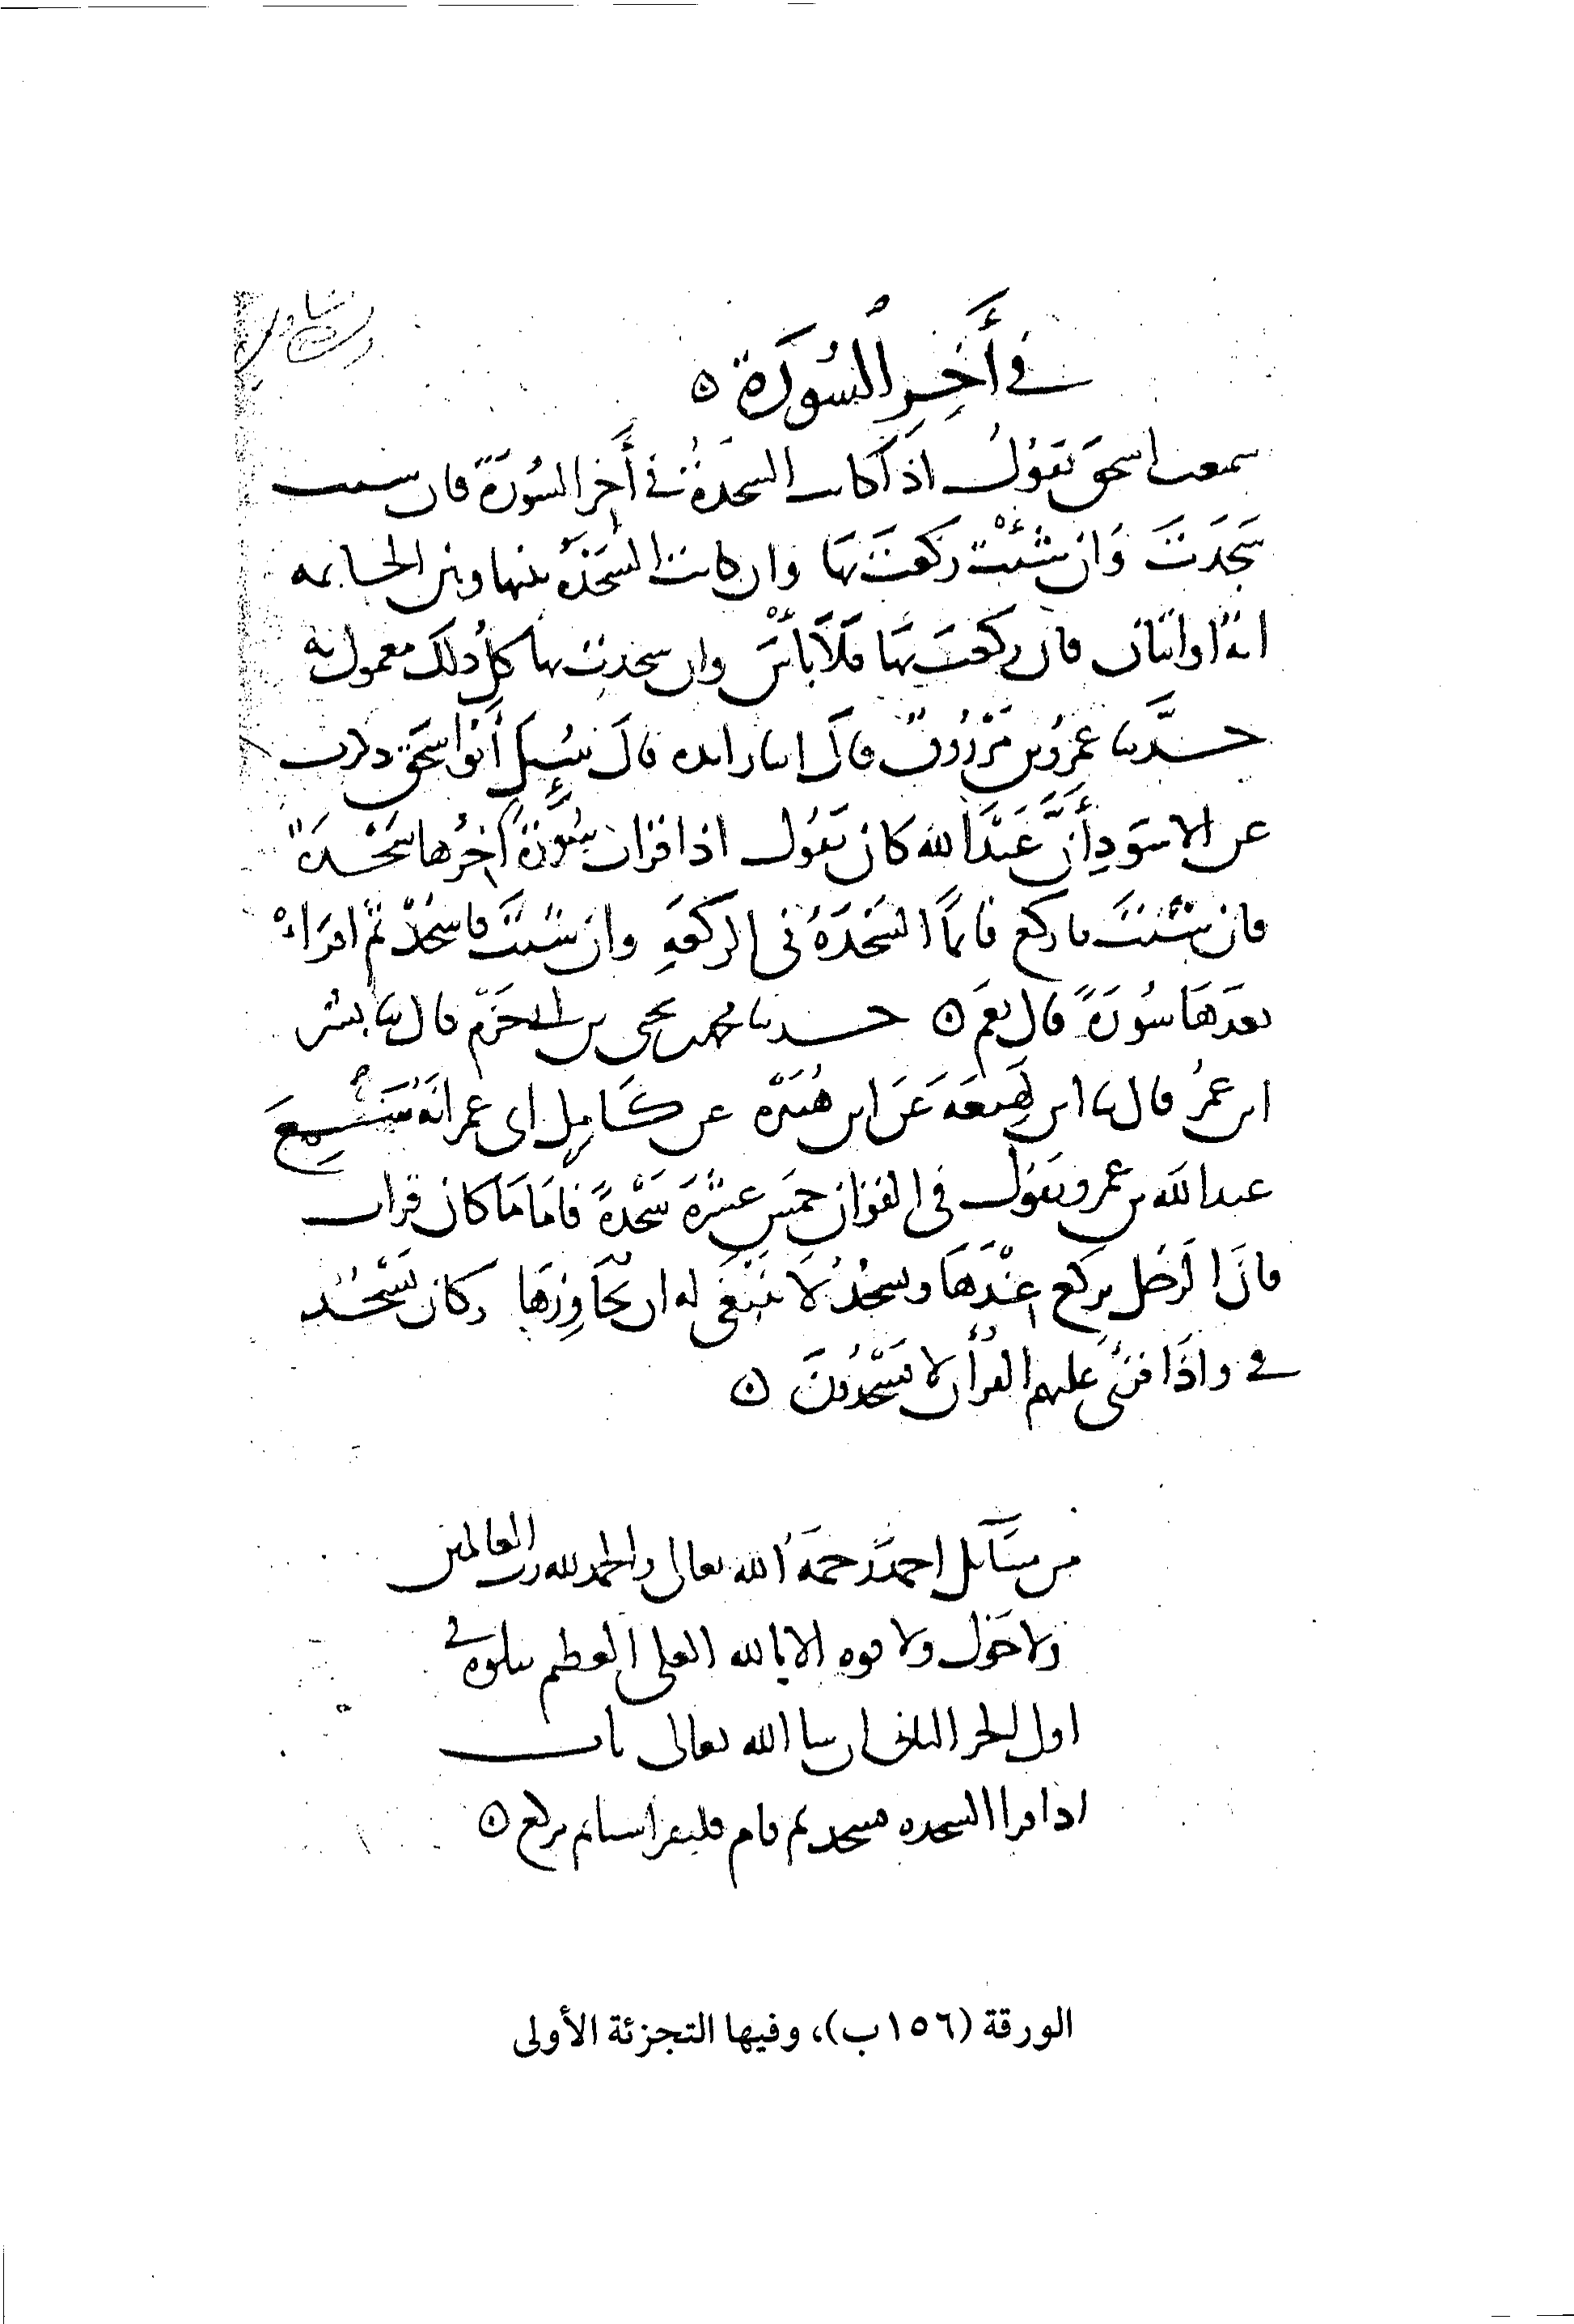 في أخر السورة
سمعت اسحق يقول اذا كانت السجدة في أخر السورة فان شئت
سجدت وان شئت ركعت بها وان كانت السجدة بينها وبين الخاتمة
اية او اثنتان فان ركعت بها فلا بأس وان سجدت بها كل ذلك معمول به
حدثنا عمرو بن مرزوق قال انبا زايده قال سئل أبو اسحق ذكرت
عن الاسود أن عبد الله كان يقول اذا قرات سورة أخرها سجدة
فان شئت فاركع فانما السجدة في الركعة وان شئت فاسجد ثم اقراء
بعدها سورة قال نعم حدثنا محمد بن يحيى بن الحزم قال ثنا بشر
ابن عمر قال ثنا ابن لهيعة عن ابن هبيرة عن كامل ابي عمر انه سمع
عبد الله بن عمرو يقول في القران خمس عشرة سجدة فاما ما كان قرات
فان الرجل يركع عندها ويسجد لا ينبغي له ان يجاوزها وكان يسجد
في واذا قرئ عليهم القرأن لا يسجدون
من مسائل احمد رحمه الله تعالى والحمد لله رب العالمين
ولا حول ولا قوه الا بالله العلي العظيم يتلوه في
اول الجز الثاني ان شا الله تعالى باب
اذا قرا السجده فسجد ثم قام فليقرا شيا ثم يركع
الورقة (١٥٦ب)، وفيها التجزئة الأولى